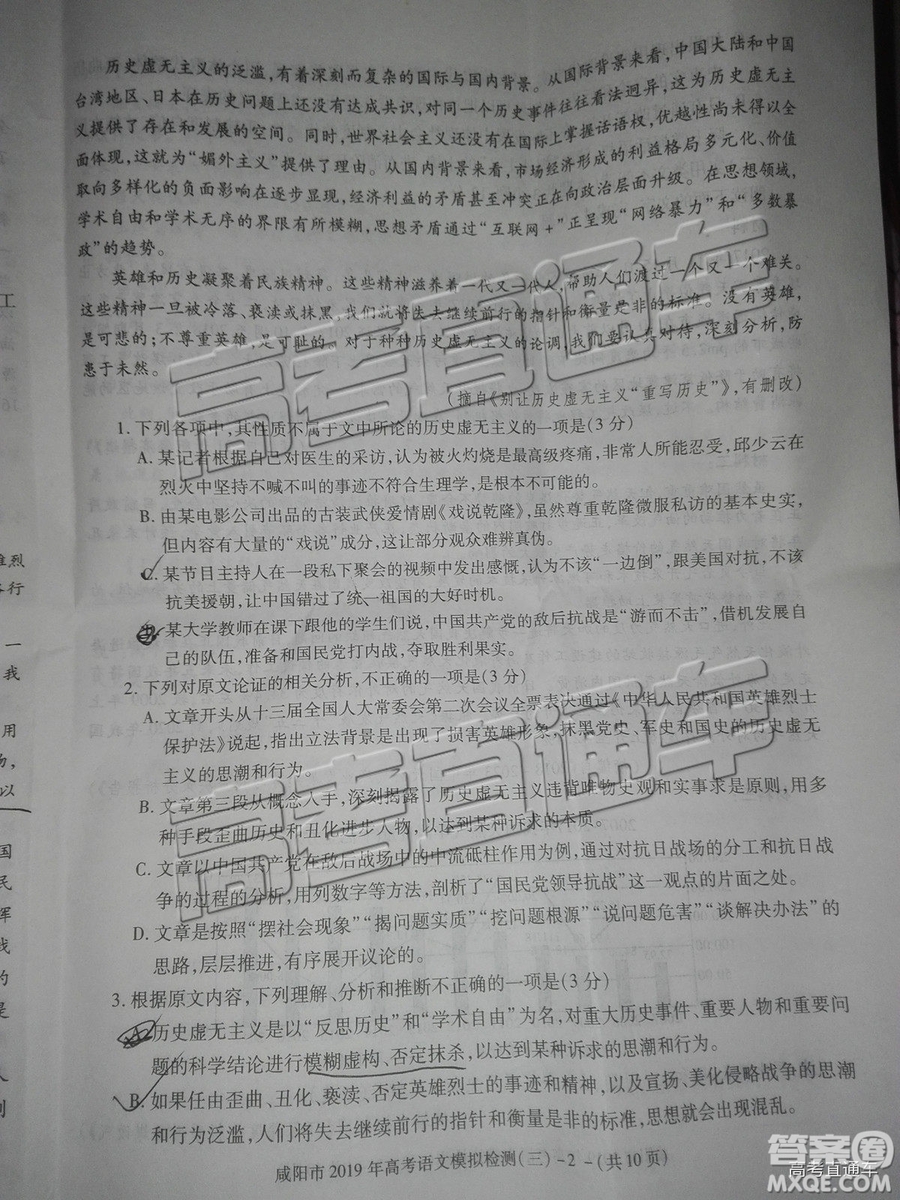 历史虚无主义的泛滥,有着深刻而复杂的国际与国内背景。从国际背景来看,中国大陆和中国
台湾地区、日本在历史问题上还没有达成共识,对同一个历史事件往往看法迥异,这为历史虚无主
义提供了存在和发展的空间。同时,世界社会主义还没有在国际上掌握话语权,优越性尚未得以全
面体现,这就为“媚外主义”提供了理由。从国内背景来看,市场经济形成的利益格局多元化、价值
取向多样化的负面影响在逐步显现,经济利益的矛盾甚至冲突正在向政治层面升级。在思想领域,
学术自由和学术无序的界限有所模糊,思想矛盾通过“互联网+”正呈现“网络暴力”和“多数暴
政”的趋势。
英雄和历史凝聚着民族精神。这些精神滋养着一代又一代人,帮助人们渡过一个又一个难关。
这些精神一旦被冷落、亵渎或抹黑,我们就将失去继续前行的指针和衡量是非的标准。没有英雄,
是可悲的;不尊重英雄,是可耻的。对于种种历史虚无主义的论调,我们要认真对待,深刻分析,防
患于未然。
(摘自《别让历史虚无主义“重写历史”》,有删改)
1. 下列各项中,其性质不属于文中所论的历史虚无主义的一项是(3分)
A. 某记者根据自己对医生的采访,认为被火灼烧是最高级疼痛,非常人所能忍受,邱少云在
烈火中坚持不喊不叫的事迹不符合生理学,是根本不可能的。
B. 由某电影公司出品的古装武侠爱情剧《戏说乾隆》,虽然尊重乾隆微服私访的基本史实,
但内容有大量的“戏说”成分,这让部分观众难辨真伪。
C. 某节目主持人在一段私下聚会的视频中发出感慨,认为不该“一边倒”,跟美国对抗,不该
抗美援朝,让中国错过了统一祖国的大好时机。
某大学教师在课下跟他的学生们说,中国共产党的敌后抗战是“游而不击”,借机发展自
己的队伍,准备和国民党打内战,夺取胜利果实。
2. 下列对原文论证的相关分析,不正确的一项是(3分)
A. 文章开头从十三届全国人大常委会第二次会议全票表决通过《中华人民共和国英雄烈士
保护法》说起,指出立法背景是出现了损害英雄形象,抹黑党史、军史和国史的历史虚无
主义的思潮和行为。
B. 文章第三段从概念入手,深刻揭露了历史虚无主义违背唯物史观和实事求是原则,用多
种手段歪曲历史和丑化进步人物,以达到某种诉求的本质。
C. 文章以中国共产党在敌后战场中的中流砥柱作用为例,通过对抗日战场的分工和抗日战
争的过程的分析,用列数字等方法,剖析了“国民党领导抗战”这一观点的片面之处。
D. 文章是按照“摆社会现象”“揭问题实质”“挖问题根源”“说问题危害”“谈解决办法”的
思路,层层推进,有序展开议论的。
3. 根据原文内容,下列理解、分析和推断不正确的一项是(3分)
A. 历史虚无主义是以“反思历史”和“学术自由”为名,对重大历史事件、重要人物和重要问
题的科学结论进行模糊虚构、否定抹杀,以达到某种诉求的思潮和行为。
B. 如果任由歪曲、丑化、亵渎、否定英雄烈士的事迹和精神,以及宣扬、美化侵略战争的思潮
和行为泛滥,人们将失去继续前行的指针和衡量是非的标准,思想就会出现混乱。
咸阳市2019年高考语文模拟检测(三) -2-(共10页)
高考直通车
高考直通车
答案圈
高考直通车
MXQE.COM